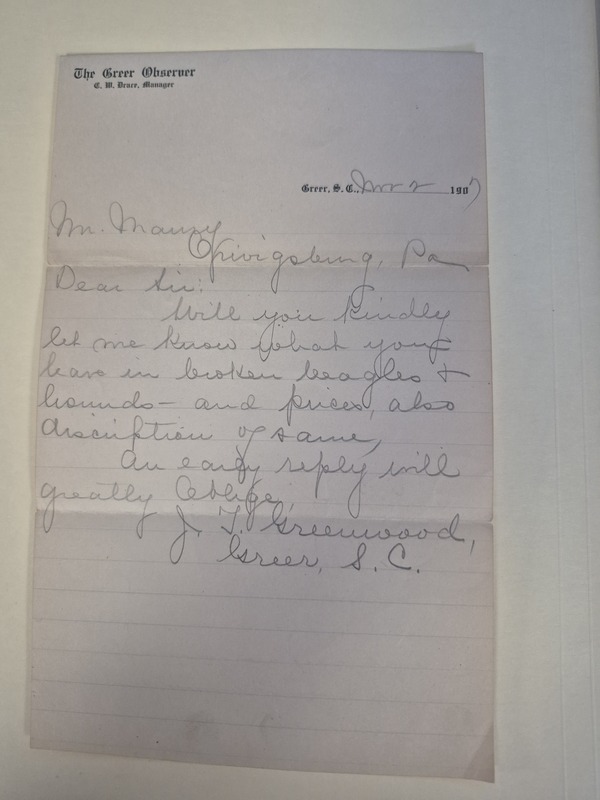 The Greer Observer
C. W. Drace, Manager
Greer, S. C., Nov 2 1907
Mr. Maury
Spivigsburg, Pa
Dear Sir:
Will you kindly
let me know what you
have in broken beagles +
hounds - and prices, also
discription of same,
An early reply will
greatly Oblige,
J. T. Greenwood,
Greer, S. C.